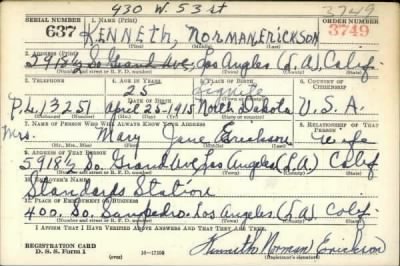 430 W. 53 st
3749
SERIAL NUMBER 1. NAME (Print) ORDER NUMBER
637 KENNETH, NORMAN ERICKSON 3749
(First) (Middle) (Last)
2. ADDRESS (Print)
5918½ So Grand Ave, Los Angles (L.A.) Calif.
(Number and street or R. F. D. number) (Town) (County) (State)
3. TELEPHONE 4. AGE IN YEARS 5. PLACE OF BIRTH 6. COUNTRY OF CITIZENSHIP
25 Lignite
DATE OF BIRTH
PL. 13251 april 25-1915 North Dakota U.S.A.
7. NAME OF PERSON WHO WILL ALWAYS KNOW YOUR ADDRESS 8. RELATIONSHIP OF THAT PERSON
Mrs. Mary Jane Erickson wife
9. ADDRESS OF THAT PERSON
5918½ So. Grand Ave, Los Angeles (L.A.) Calif
(Number and street or R. F. D. number) (Town) (County) (State)
10. EMPLOYER'S NAME
Standards Station
11. PLACE OF EMPLOYMENT OR BUSINESS
400. So. Sanpedro. Los Angeles (L.A.) Calif.
(Number and street or R. F. D. number) (Town) (County) (State)
I AFFIRM THAT I HAVE VERIFIED ABOVE ANSWERS AND THAT THEY ARE TRUE.
REGISTRATION CARD
D. S. S. Form 1 (over) Kenneth Norman Erickson
(Registrant's signature)